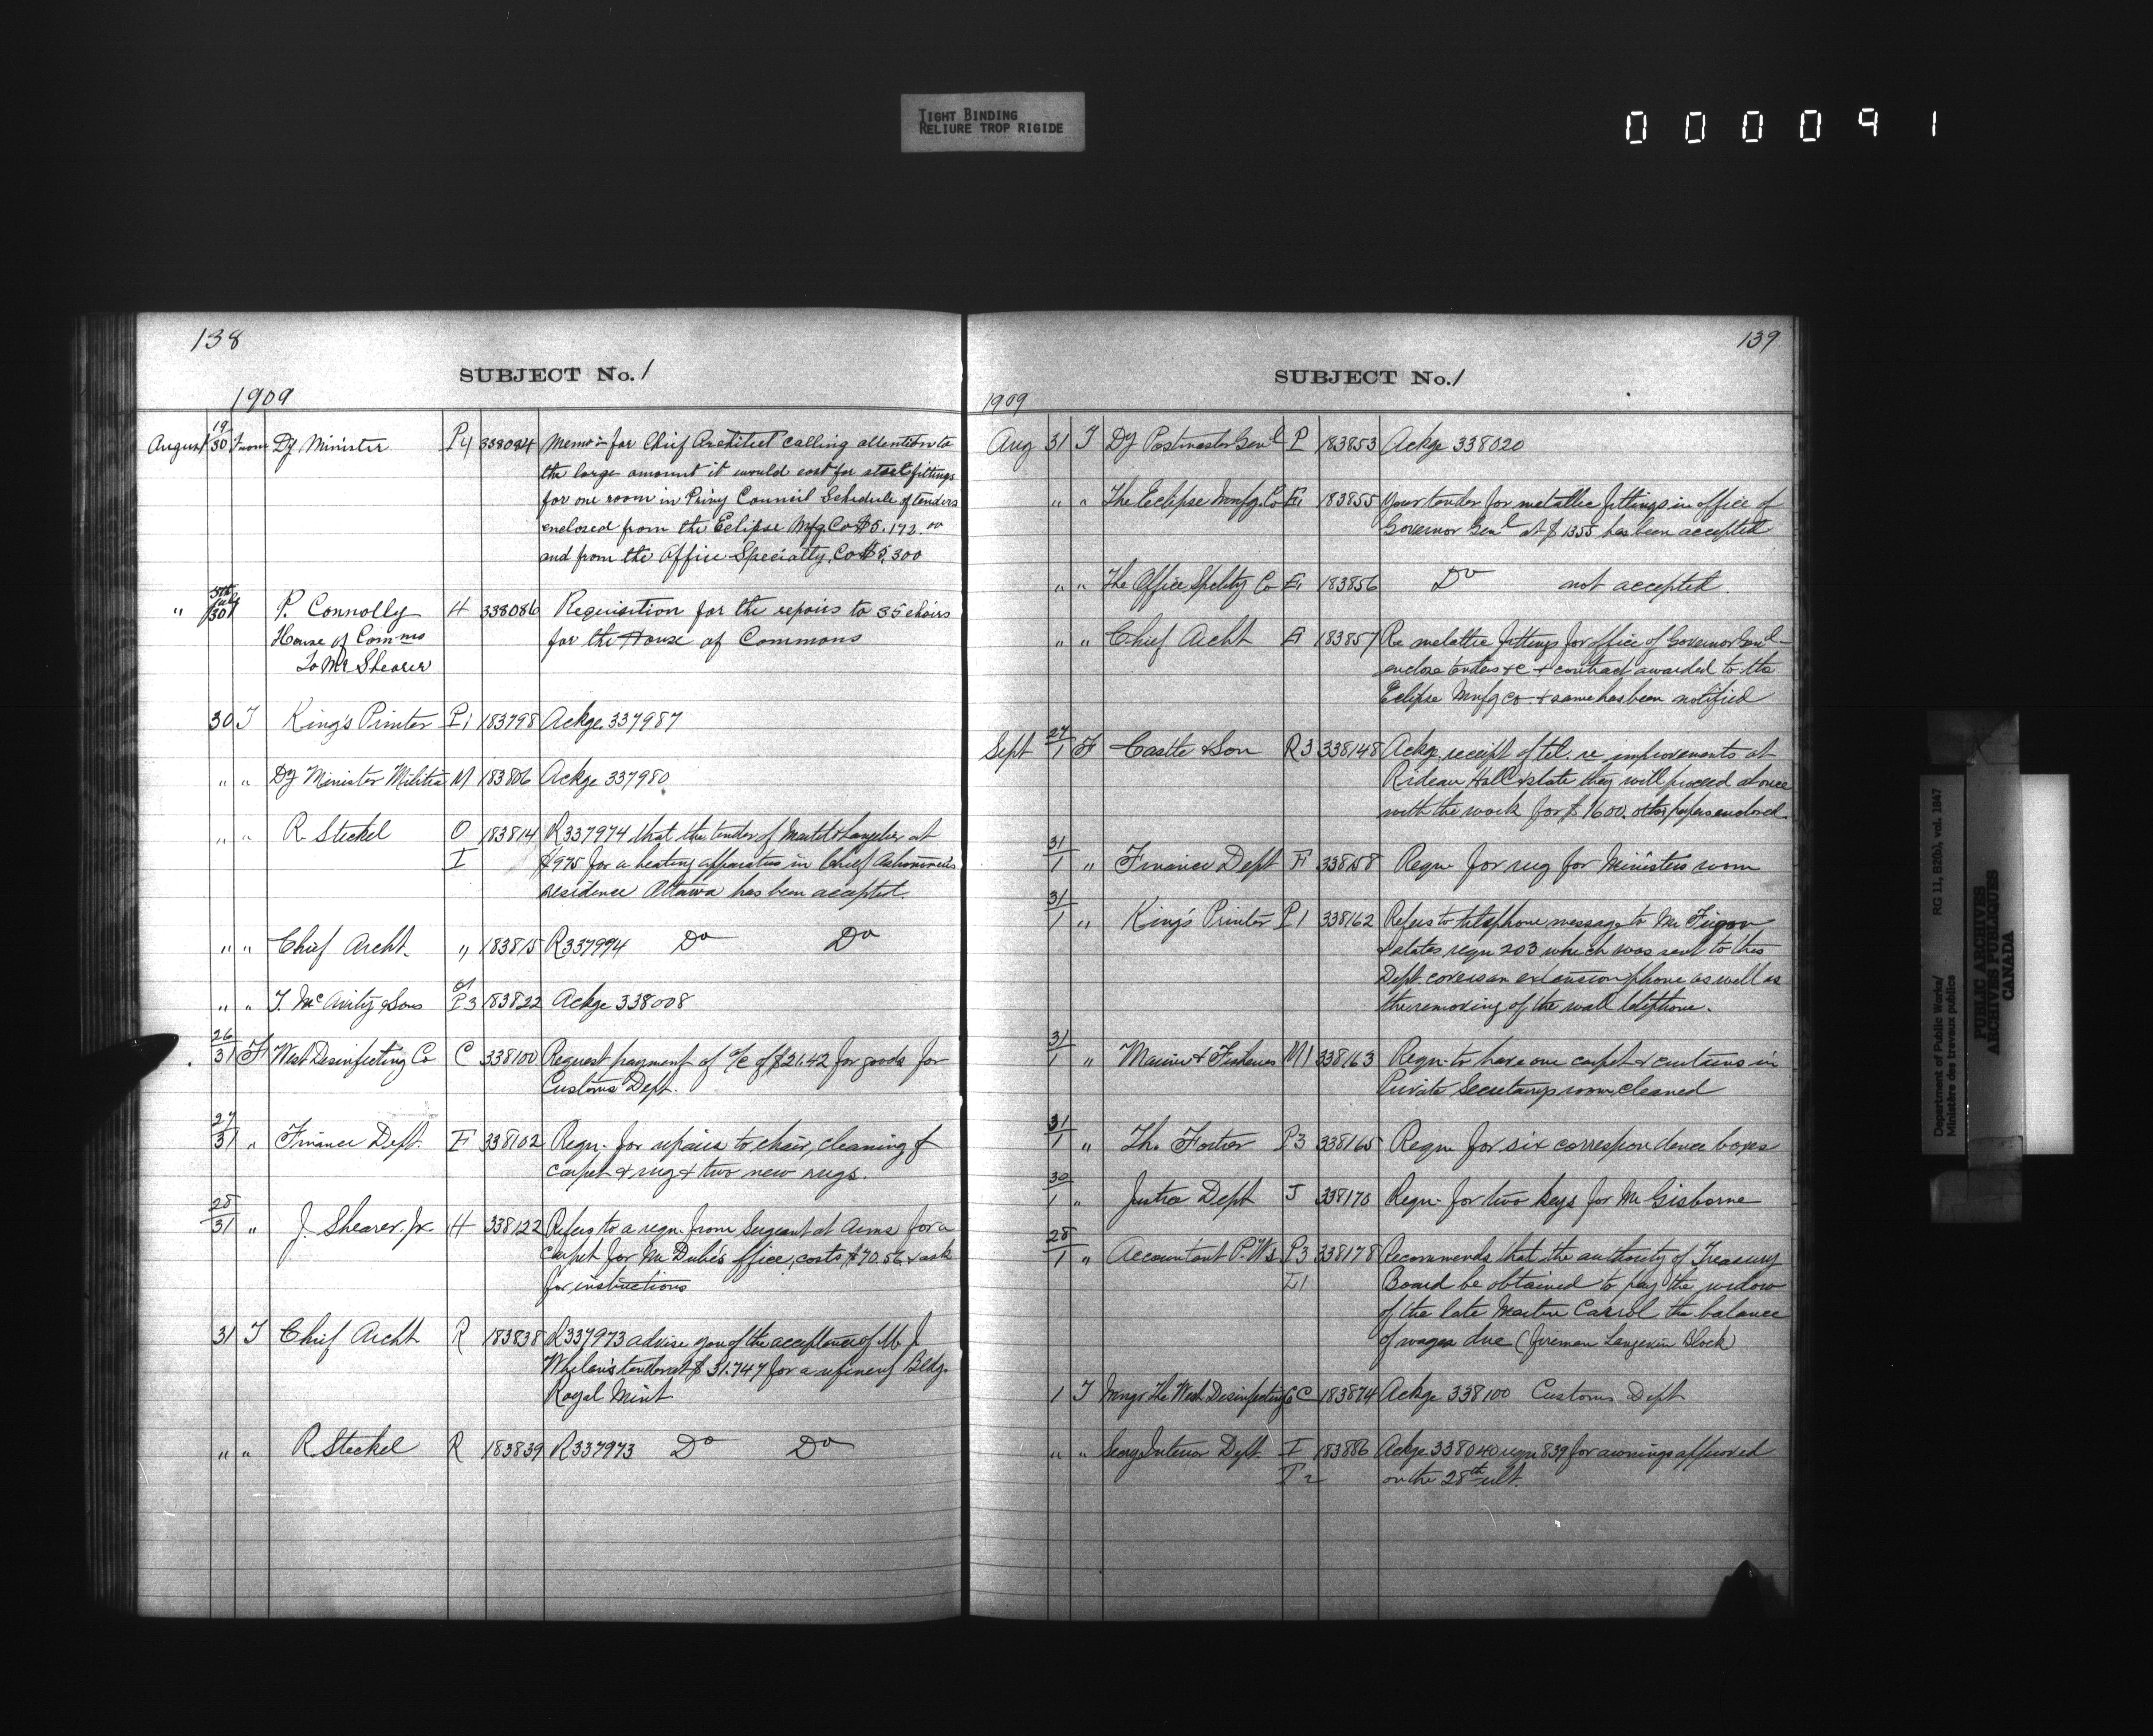 TIGHT BINDING
RELIURE TROP RIGIDE
000091
138
SUBJECT No. 1
1909
August 19/30 From Dy Minister P4 338084 Memo - for Chief Architect calling attention to
the large amount it would cost for steel fittings
for one room in Privy Council Schedule of tenders
enclosed from the Eclipse Mfg. Co $5.172.00
and from the Office Specialty Co $5,300
" 30 P. Connolly H 338086 Requisition for the repairs to 35 chairs
House of Comms for the House of Commons
To Mr Shearer
30 T King's Printer P1 183798 Ackge 337987
" " Dy Minister Militia M 183806 Ackge 337980
" " R. Steckel O 183814 R337974 that the tender of Martel & Langelier at
I $975 for a heating apparatus in Chief Astronomer's
residence Ottawa has been accepted.
" " Chief Archt. " 183815 R337994 Do Do
" " T. McAvity & Sons P3 183822 Ackge 338008
26/31 F West Desinfecting Co C 338100 Request payment of a/c of $21.42 for goods for
Customs Dept.
27/31 " Finance Dept. F 338102 Reqn. for repairs to chair, cleaning of
carpet & rug & two new rugs.
28/31 " J. Shearer, Jr. H 338122 Refers to a reqn. from Sergeant at Arms for a
carpet for Mr Dubé's office, costs $70.56 & ask
for instructions
31 T Chief Archt R 183838 R337973 advise you of the acceptance of M J
Whelan's tender at $31.747 for a refinery Bldg.
Royal Mint
" " R Steckel R 183839 R337973 Do Do
139
SUBJECT No. 1
1909
Aug 31 T Dy Postmaster Genl P 183853 Ackge 338020
" " The Eclipse Mnfg. Co E1 183855 Your tender for metallic fittings in office of
Governor Genl at $1355 has been accepted
" " The Office Spelty Co E1 183856 Do not accepted.
" " Chief Archt 183857 Re metallic fittings for office of Governor Genl -
enclose tenders &c & contract awarded to the
Eclipse Mnfg co. & same has been notified
Sept 27/1 F Castle & Son R3 338148 Ackg. receipt of tel. re improvements at
Rideau Hall & state they will proceed at once
with the work for $1600. other papers enclosed.
31/1 " Finance Dept F 338158 Reqn for rug for Ministers room
31/1 " King's Printer P1 338162 Refers to telephone message to Mr
& states reqn 203 which was sent to this
Dept. covers an extension phone as well as
the removing of the wall telephone.
31/1 " Marine & Fisheries M1 338163 Reqn. to have one carpet & curtains in
Private Secretarys room cleaned
31/1 " Th. Fortier P3 338165 Reqn for six correspondence boxes
30/1 " Justice Dept J 338170 Reqn. for two keys for Mr Gisborne
28/1 " Accountant P.Ws P3 338178 Recommends that the authority of Treasury
L1 Board be obtained to pay the widow
of the late Martin Carrol the balance
of wages due (fireman Langevin Block)
1 T Mngr The West Desinfecting Co C 183874 Ackge 338100 Customs Dept
" " Secry Interior Dept. I 183886 Ackge 338040 reqn 839 for awnings approved
I2 on the 28th ult.
Department of Public Works/
Ministère des travaux publics
RG 11, B2(b), vol. 1847
PUBLIC ARCHIVES
ARCHIVES PUBLIQUES
CANADA